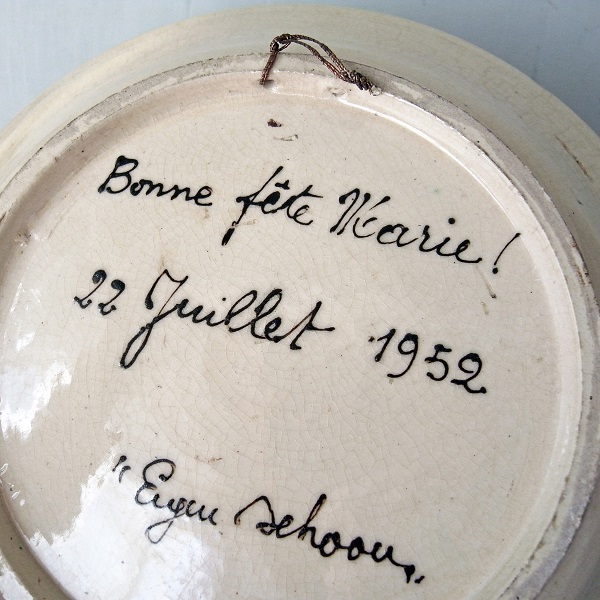 Bonne fête Marie!
22 Juillet 1952
"Eigen Schoon"